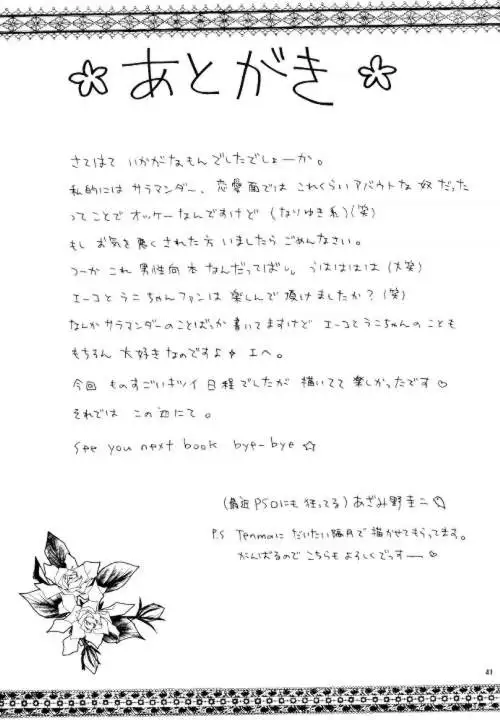 あとがき
さてはて いかがなもんでしたでしょーか。
私的には サラマンダー、恋愛面では これくらい アバウトな 奴だった
ってことで オッケーなんですけど (なりゆき系)(笑)
もし お気を悪くされた方 いましたら ごめんなさい。
つーか これ 男性向本 なんだってばし。 うはははは (大笑)
エーコとラニちゃんファンは 楽しんで頂けましたか？(笑)
なんか サラマンダーのことばっか 書いてますけど エーコとラニちゃんのことも
もちろん 大好きなのですよ エへ。
今回 ものすごいキツイ 日程でしたが 描いてて 楽しかったです♡
それでは この辺にて。
See you next book bye-bye ☆
(最近 PSOにも 狂ってる) あざみ野圭二
P.S Tenmaに だいたい隔月で 描かせてもらってます。
がんばるので こちらも よろしくでっすー ♡
41